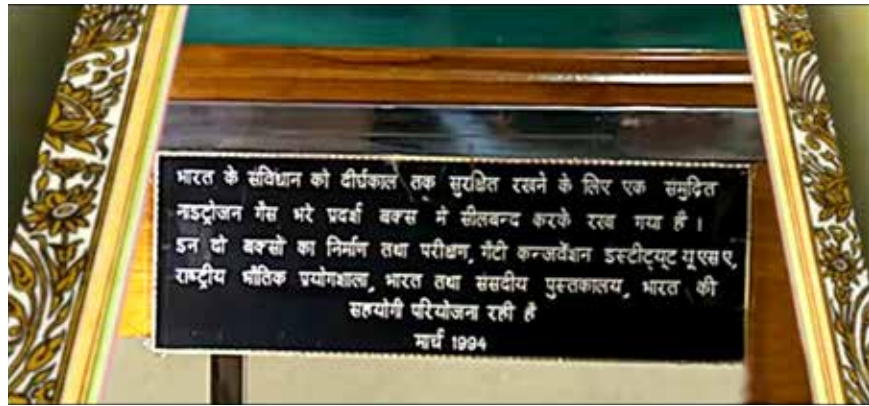 भारत के संविधान को दीर्घकाल तक सुरक्षित रखने के लिए एक समुद्रित
नाइट्रोजन गैस भरे प्रदर्श बक्स मे सीलबन्द करके रखा गया है ।
इन दो बक्सों का निर्माण तथा परीक्षण, गेटी कन्जर्वेशन इस्टीट्यूट यू एस ए,
राष्ट्रीय भौतिक प्रयोगशाला, भारत तथा संसदीय पुस्तकालय, भारत की
सहयोगी परियोजना रही है
मार्च 1994